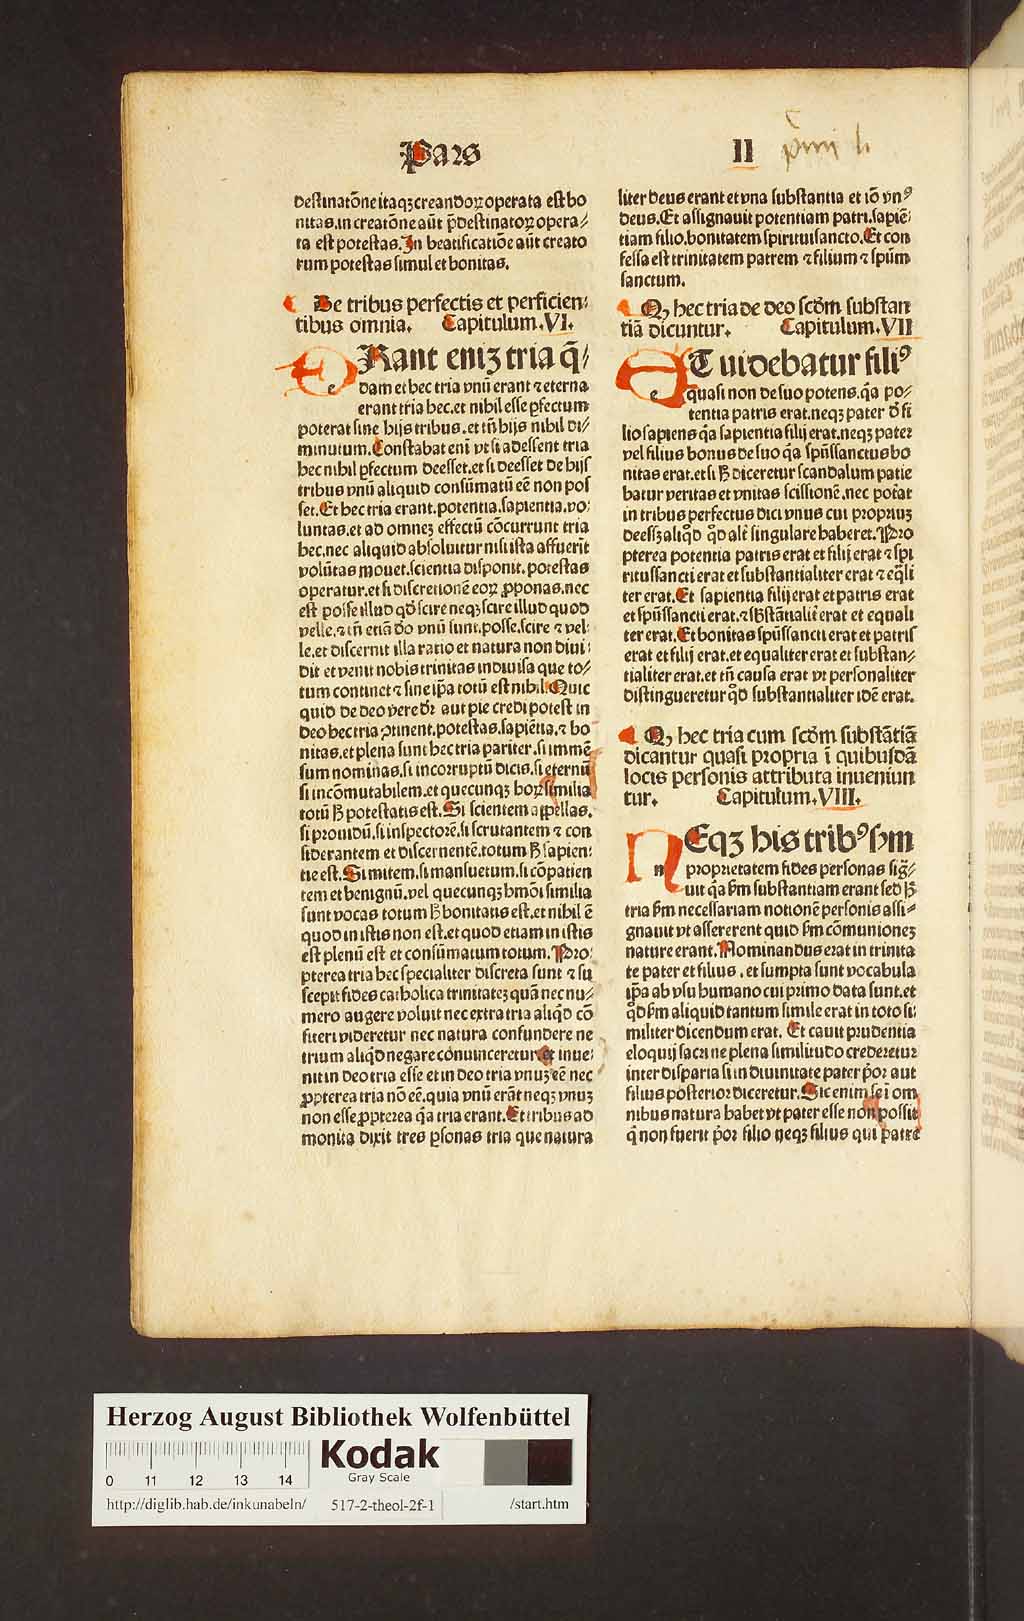 Pars
II
destinatōne itaqꝫ creandoꝝ operata est bo
nitas. in creatōne aūt p̄destinatoꝝ opera⸗
ta est potestas. In beatificatiōe aūt creato
rum potestas simul et bonitas.
De tribus perfectis et perficien⸗
tibus omnia. Capitulum. VI.
eRant eniꝫ tria q̄⸗
dam et hec tria vnū erant ⁊ eterna
erant tria hec. et nihil esse ꝑfectum
poterat sine hijs tribus. et tn̄ hijs nihil di⸗
minutum. Constabat enī vt si adessent tria
hec nihil ꝑfectum deesset. et si deesset de hijs
tribus vnū aliquid consūmatū eē non pos
set. Et hec tria erant. potentia. sapientia. vo⸗
luntas. et ad omneꝫ effectū cōcurrunt tria
hec. nec aliquid absoluitur nisi ista affuerīt
volūtas mouet. scientia disponit. potestas
operatur. et si discretionē eoꝝ ꝓponas. nec
est posse illud qd̄ scire neqꝫ scire illud quod
velle. ⁊ tn̄ etiā deo vnū sunt. posse. scire ⁊ vel⸗
le. et discernit illa ratio et natura non diui⸗
dit et venit nobis trinitas indiuisa que to⸗
tum continet ⁊ sine ip̄a totū est nihil. Quic
quid de deo vere dr̄ aut pie credi potest in
deo hec tria ꝯtinent. potestas. sapiētia. ⁊ bo
nitas. et plena sunt hec tria pariter. si immē
sum nominas. si incorruptū dicis. si eternū
si incōmutabilem. et quecunqꝫ hoꝝ similia
totū h̄ potestatis est. Si scientem appellas.
si prouidū. si inspectorē. si scrutantem ⁊ con
siderantem et discernentē. totum h̄ sapien⸗
tie est. Si mitem. si mansuetum. si cōpatien
tem et benignū. vel quecunqꝫ hmōi similia
sunt vocas totum h̄ bonitatis est. et nihil ē
quod in istis non est. et quod etiam in istis
est plenū est et consūmatum totum. Pro⸗
pterea tria hec specialiter discreta sunt ⁊ su
scepit fides catholica trinitateꝫ quā nec nu⸗
mero augere voluit nec extra tria aliqd̄ cō
fiteri videretur nec natura confundere ne
trium aliqd̄ negare conuinceretur. et inue⸗
nit in deo tria esse et in deo tria vnuꝫ eē nec
ꝓpterea tria nō eē. quia vnū erāt neqꝫ vnuꝫ
non esse ꝓpterea q̄a tria erant. Et tribus ad
monita dixit tres ꝑsonas tria que natura
liter deus erant et vna substantia et iō vnꝰ
deus. Et assignauit potentiam patri. sapiē⸗
tiam filio. bonitatem spiritui sancto. Et con
fessa est trinitatem patrem ⁊ filium ⁊ spūm
sanctum.
Ꝙ hec tria de deo scd̄m substan
tiā dicuntur. Capitulum. VII
eT uidebatur filiꝰ
quasi non de suo potens. q̄a po⸗
tentia patris erat. neqꝫ pater d̄ fi
lio sapiens q̄a sapientia filij erat. neqꝫ pater
vel filius bonus de suo q̄a spūssanctus bo
nitas erat. et si h̄ diceretur scandalum patie
batur veritas et vnitas scissionē. nec potāt
in tribus perfectus dici vnus cui propriuꝫ
deessꝫ aliqd̄ qd̄ alt̄ singulare haberet. Pro
pterea potentia patris erat et filij erat ⁊ spi
ritussancti erat et substantialiter erat ⁊ eq̄li
ter erat. Et sapientia filij erat et patris erat
et spūssancti erat. ⁊ sb̄stātialit̄ erat et equali
ter erat. Et bonitas spūssancti erat et patris
erat et filij erat. et equaliter erat et substan⸗
tialiter erat. et tn̄ causa erat vt personaliter
distingueretur qd̄ substantialiter idē erat.
Ꝙ hec tria cum scd̄m substātiā
dicantur quasi propria ī quibusdā
locis personis attributa inueniun
tur. Capitulum. VIII.
nEqꝫ his tribꝰ hm̄
proprietatem fides personas sig̃⸗
uit q̄a hm̄ substantiam erant sed h̄
tria hm̄ necessariam notionē personis assi⸗
gnauit vt assererent quid hm̄ cōmunioneꝫ
nature erant. Nominandus erat in trinita
te pater et filius. et sumpta sunt vocabula
ip̄a ab vsu humano cui primo data sunt. et
qd̄ hm̄ aliquid tantum simile erat in toto si⸗
militer dicendum erat. Et cauit prudentia
eloquij sacri ne plena similitudo crederetur
inter disparia si in diuinitate pater p̄or aut
filius posterior diceretur. Sic enim se ī om
nibus natura habet vt pater esse non possit
q̄ non fuerit p̄or filio neqꝫ filius qui patrē
Herzog August Bibliothek Wolfenbüttel
Kodak
Gray Scale
0 11 12 13 14
http://diglib.hab.de/inkunabeln/ 517-2-theol-2f-1 /start.htm